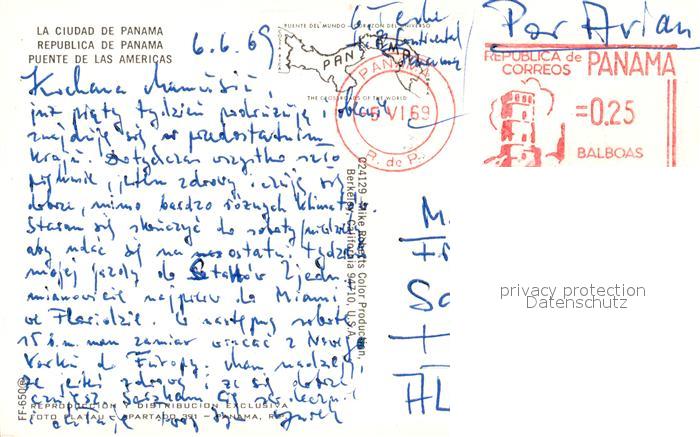 LA CIUDAD DE PANAMA
REPUBLICA DE PANAMA
PUENTE DE LAS AMERICAS
6.6.69
PUENTE DEL MUNDO - CORAZON DEL UNIVERSO
PAN AMA
THE CROSSROADS OF THE WORLD
Continental
Panama
Par Avion
PANAMA
5 VI 69
R. de P.
REPUBLICA de PANAMA
CORREOS
=0.25
BALBOAS
Kochana Mamusiu,
już piąty tydzień podróżuję i obecnie
znajduję się w przedostatnim
kraju. Dotychczas wszystko szło
pięknie, jestem zdrowy i czuję się
dobrze, mimo bardzo różnych klimatów.
Staram się skończyć do soboty
aby udać się na ostatni tydzień
mojej jazdy do Stanów Zjedn.
mianowicie najpierw do Miami
we Florydzie. W następną sobotę
15 b.m. mam zamiar wracać z Nowego
Yorku do Europy. Mam nadzieję
że jesteś zdrowa i że się dobrze
czujesz. Ściskam Cię serdecznie
i całuję Twój Jurek
C24129-Mike Roberts Color Production,
Berkeley, California 94710, U.S.A.
FF-650
REPRODUCCION Y DISTRIBUCION EXCLUSIVA
FOTO FLATAU - APARTADO 391 - PANAMA, R.P.
M.
AL
privacy protection
Datenschutz